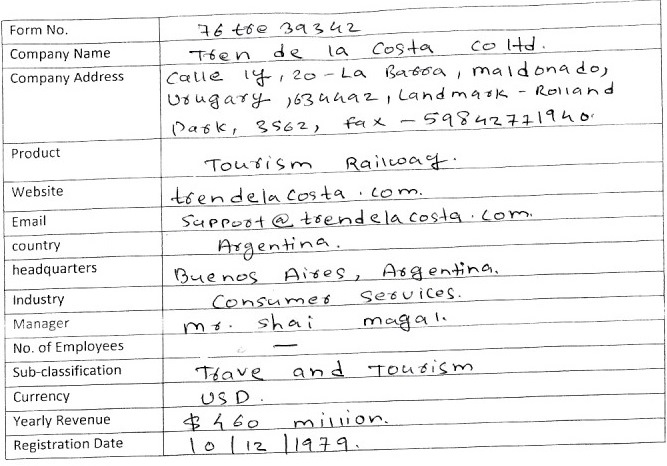 Form No. 76 tre 39342
Company Name Tren de la Costa Co ltd.
Company Address Calle 14, 20 - La Barra, maldonado,
Urugary, 634492, Landmark - Rolland
Park, 3562, fax - 59842771940.
Product Tourism Railway.
Website trendelacosta.com.
Email Support@trendelacosta.com.
country Argentina.
headquarters Buenos Aires, Argentina.
Industry Consumer Services.
Manager mr. shai magal.
No. of Employees —
Sub-classification Trave and Tourism
Currency USD.
Yearly Revenue $ 460 million.
Registration Date 10/12/1979.